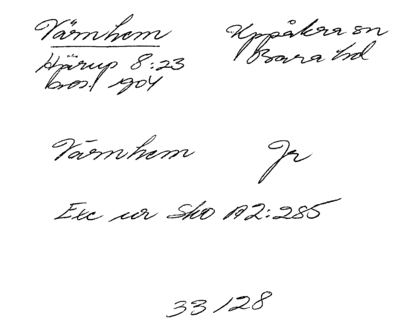 Värnhem Uppåkra sn
Hjärup 8:23 Bara hd
best 1904
Värnhem Jr
Exc ur Sko A2:285
33/28